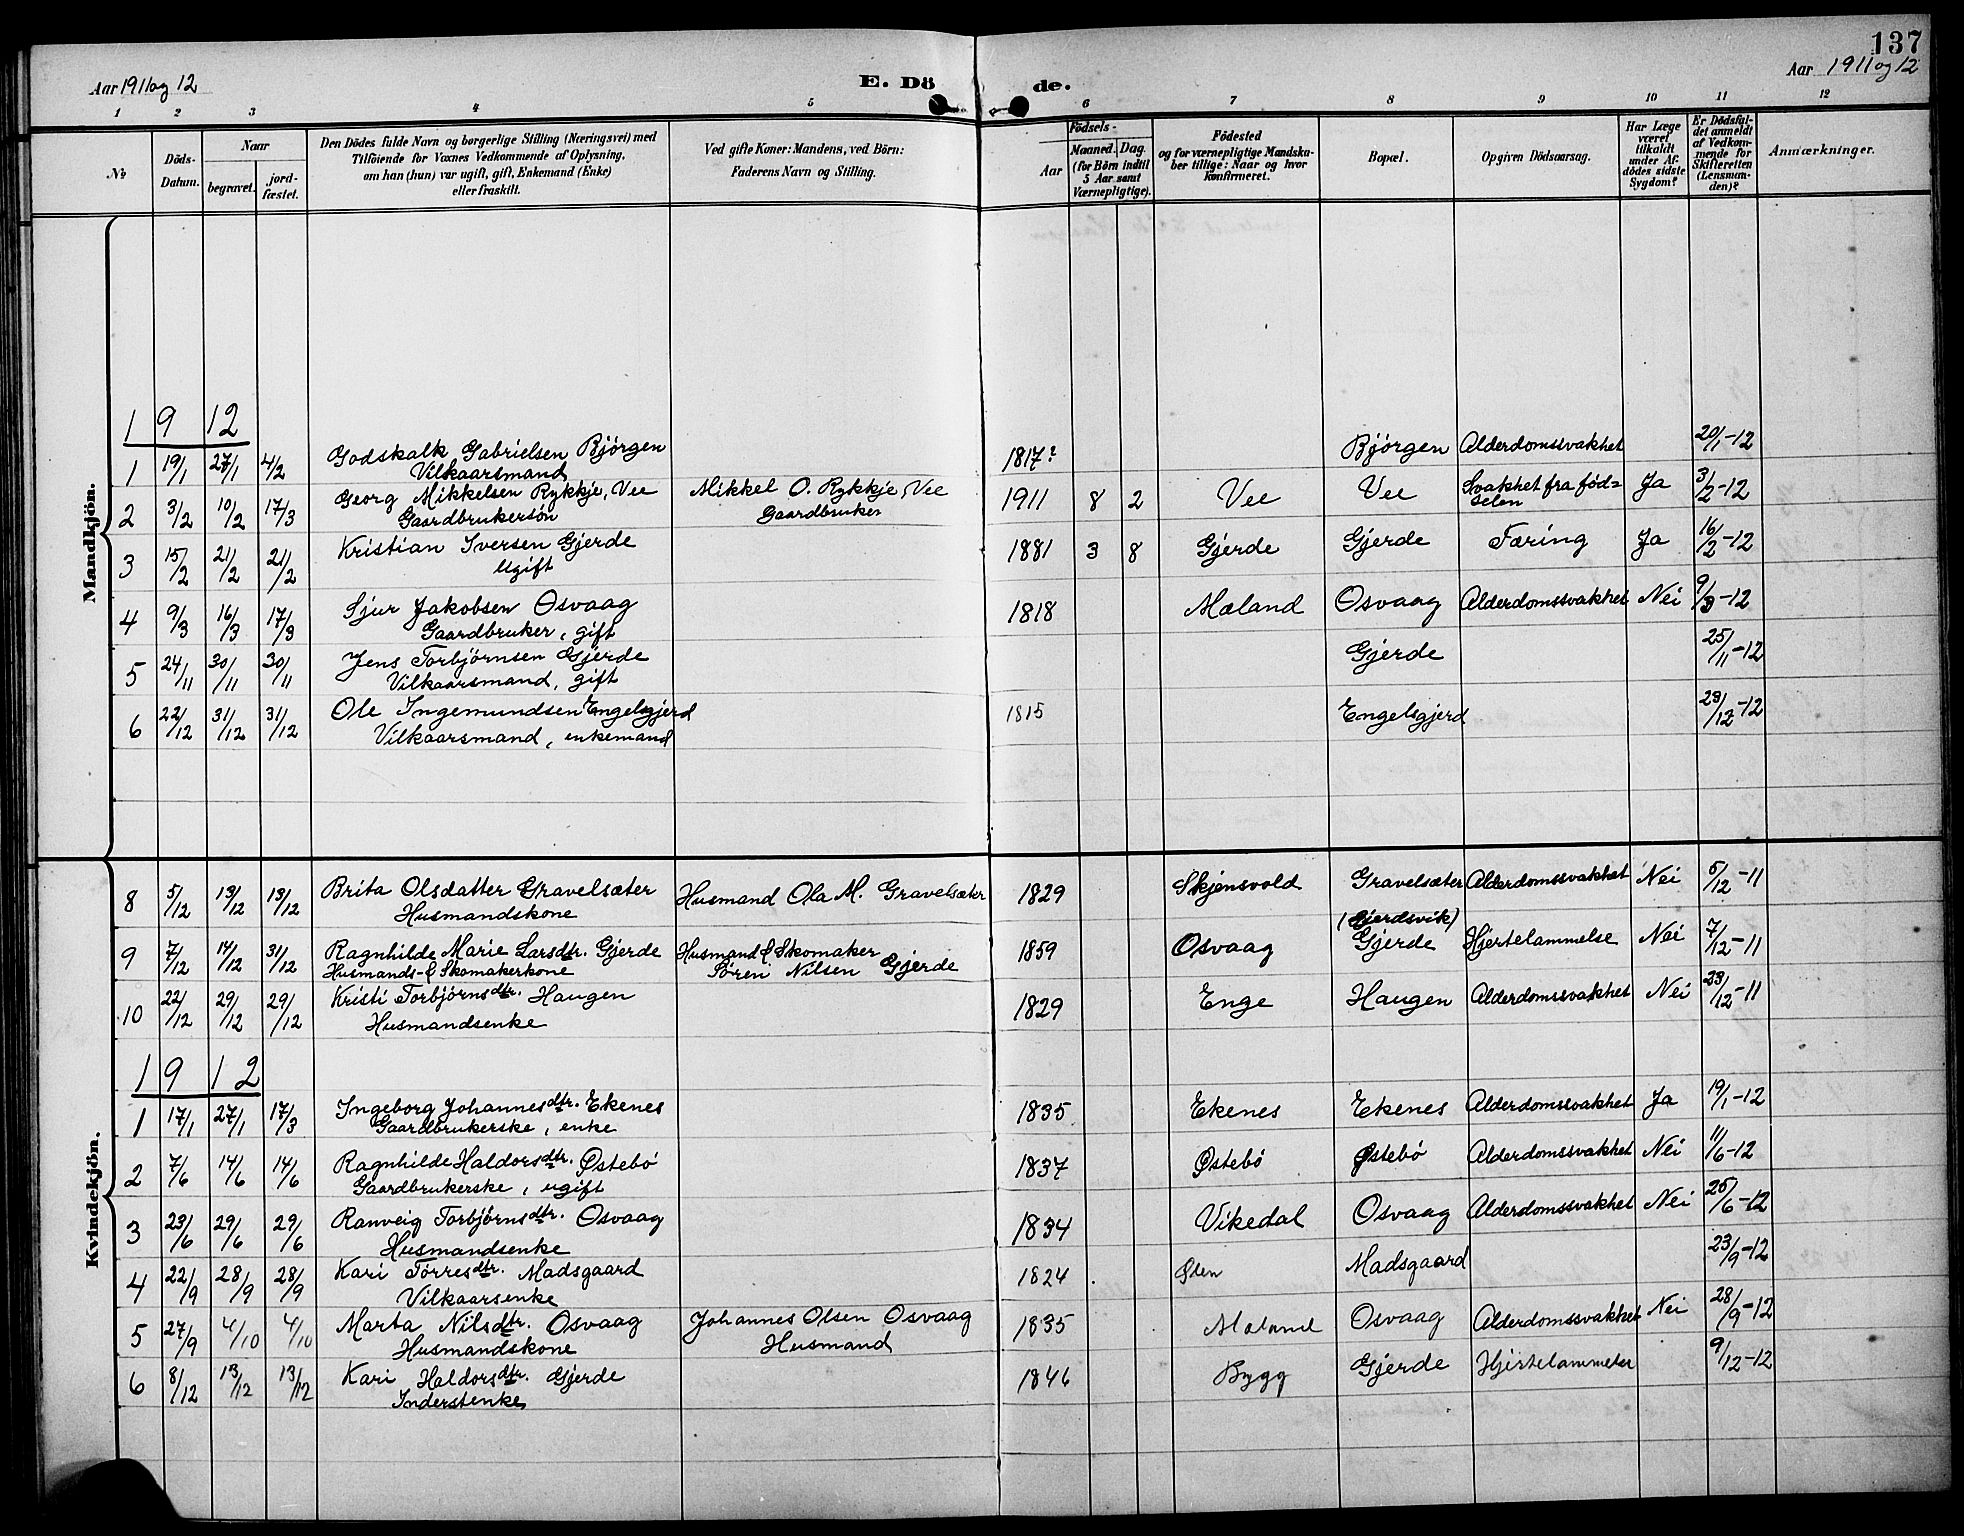 137
Aar 1911 og 12
E. Dö de.
Aar 1911 og 12
1 2 3 4 5 6 7 8 9 10 11 12
No
Döds-Datum.
Naar
begravet.
jord-fæstet.
Den Dödes fulde Navn og borgerlige Stilling (Næringsvei) med
Tilföiende for Voxnes Vedkommende af Oplysning,
om han (hun) var ugift, gift, Enkemand (Enke)
eller fraskilt.
Ved gifte Koner: Mandens, ved Börn:
Faderens Navn og Stilling.
Födsels-
Aar
Maaned. Dag.
(for Börn indtil
5 Aar samt
Værnepligtige).
Födested
og for værnepligtige Mandska-
ber tillige: Naar og hvor
konfirmeret.
Bopæl.
Opgiven Dödsaarsag.
Har Læge
været
tilkaldt
under Af-
dödes sidste
Sygdom?
Er Dödsfal-
det anmeldt
af Vedkom-
mende for
Skifteretten
(Lensman-
den)?
Anmærkninger.
Mandkjön.
1912
1 19/1 27/1 4/2 Godskalk Gabrielsen Bjørgen 1817? Bjørgen Alderdomssvakhet 20/1-12
Vilkaarsmand
2 3/2 10/2 17/3 Georg Mikkelsen Rykkje, Vee Mikkel O. Rykkje, Vee 1911 8 2 Vee Vee Svakhet fra fød= Ja 3/2-12
Gaardbrukersøn Gaardbruker selen
3 15/2 21/2 21/2 Kristian Iversen Gjerde 1881 3 8 Gjerde Gjerde Tæring Ja 16/2-12
Ugift
4 9/3 16/3 17/3 Sjur Jakobsen Osvaag 1818 Mæland Osvaag Alderdomssvakhet Nei 9/3-12
Gaardbruker, gift
5 24/11 30/11 30/11 Jens Torbjørnsen Gjerde Gjerde 25/11-12
Vilkaarsmand, gift
6 22/12 31/12 31/12 Ole Ingemundsen Engelsgjerd 1815 Engelsgjerd 23/12-12
Vilkaarsmand, enkemand
Kvindekjön.
8 5/12 13/12 13/12 Brita Olsdatter Gravelsæter Husmand Ola M. Gravelsæter 1829 Skjensvold Gravelsæter Alderdomssvakhet Nei 6/12-11
Husmandskone
(Gjerdsvik)
9 7/12 14/12 31/12 Ragnhilde Marie Larsdtr. Gjerde Husmand & Skomaker 1859 Osvaag Gjerde Hjertelammelse Nei 7/12-11
Husmands- & Skomakerkone Søren Nilsen Gjerde
10 22/12 29/12 29/12 Kristi Torbjørnsdtr. Haugen 1829 Enge Haugen Alderdomssvakhet Nei 23/12-11
Husmandsenke
1912
1 17/1 27/1 17/3 Ingeborg Johannesdtr. Ekenes 1835 Ekenes Ekenes Alderdomssvakhet Ja 19/1-12
Gaardbrukerske, enke
2 7/6 14/6 14/6 Ragnhilde Haldorsdtr. Østebø 1837 Østebø Østebø Alderdomssvakhet Nei 11/6-12
Gaardbrukerske, ugift
3 23/6 29/6 29/6 Ranveig Torbjørnsdtr. Osvaag 1834 Vikedal Osvaag Alderdomssvakhet Nei 25/6-12
Husmandsenke
4 22/9 28/9 28/9 Kari Tørresdtr. Madsgaard 1824 Madsgaard 23/9-12
Vilkaarsenke
5 27/9 4/10 4/10 Marta Nilsdtr. Osvaag Johannes Olsen Osvaag 1835 Osvaag Alderdomssvakhet Nei 28/9-12
Husmandskone Husmand
6 8/12 13/12 13/12 Kari Haldorsdtr. Gjerde 1846 Bygg Gjerde 9/12-12
Inderstenke